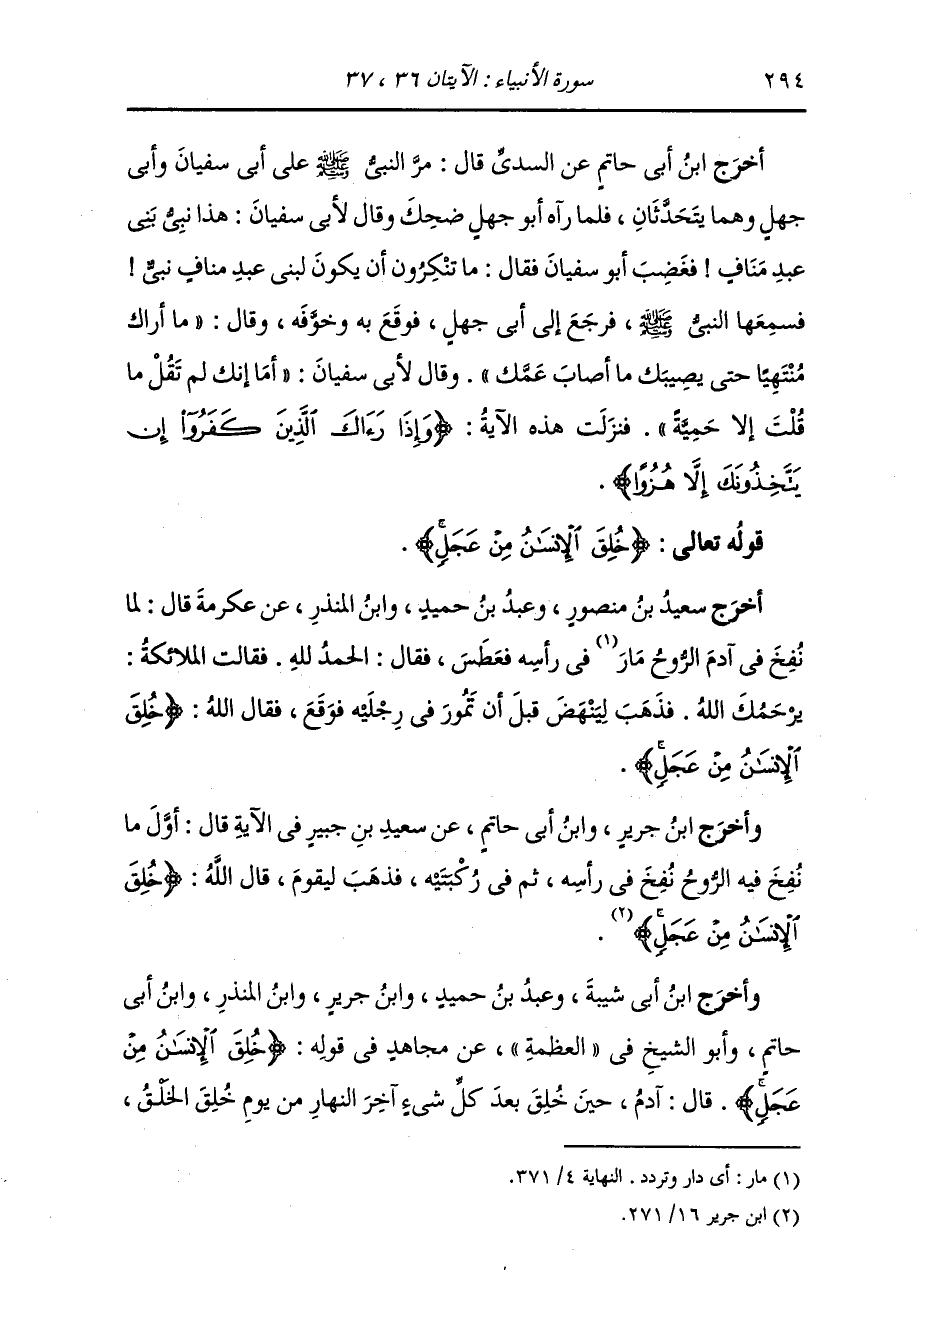 ٢٩٤ سورة الأنبياء : الآيتان ٣٦ ، ٣٧
أخرَج ابنُ أبى حاتمٍ عن السدىِّ قال : مرَّ النبىُّ ﷺ على أبى سفيانَ وأبى
جهلٍ وهما يتَحَدَّثَانِ ، فلما رآه أبو جهلٍ ضحِكَ وقال لأبى سفيانَ : هذا نبِىُّ بَنِى
عبدِ مَنَافٍ ! فغَضِبَ أبو سفيانَ فقال : ما تنْكِرُون أن يكونَ لبنى عبدِ منافٍ نبىٌّ !
فسمِعَها النبىُّ ﷺ ، فرجَعَ إلى أبى جهلٍ ، فوقَعَ به وخوَّفَه ، وقال : « ما أراك
مُنْتَهِيًا حتى يصِيبَك ما أصابَ عَمَّك » . وقال لأبى سفيانَ : « أمَا إنك لم تَقُلْ ما
قُلْتَ إلا حَمِيَّةً » . فنزَلَت هذه الآيةُ : ﴿وَإِذَا رَءَاكَ ٱلَّذِينَ كَفَرُوٓاْ إِن
يَتَّخِذُونَكَ إِلَّا هُزُوًا﴾ .
قولُه تعالى : ﴿خُلِقَ ٱلْإِنسَٰنُ مِنْ عَجَلٍۚ﴾ .
أخرَج سعيدُ بنُ منصورٍ ، وعبدُ بنُ حميدٍ ، وابنُ المنذرِ ، عن عكرمةَ قال : لما
نُفِخَ فى آدمَ الرُّوحُ مَارَ(١) فى رأسِه فعَطَس ، فقال : الحمدُ للهِ . فقالت الملائكةُ :
يرْحَمُكَ اللهُ . فذهَبَ لِيَنْهَضَ قبلَ أن تَمُورَ فى رِجلَيْه فوَقَعَ ، فقال اللهُ : ﴿خُلِقَ
ٱلْإِنسَٰنُ مِنْ عَجَلٍۚ﴾ .
وأخرَج ابنُ جريرٍ ، وابنُ أبى حاتمٍ ، عن سعيدِ بنِ جبيرٍ فى الآيةِ قال : أوَّلَ ما
نُفِخَ فيه الرُّوحُ نُفِخَ فى رأسِه ، ثم فى رُكْبَتَيْه ، فذهَبَ ليقومَ ، قال اللَّهُ : ﴿خُلِقَ
ٱلْإِنسَٰنُ مِنْ عَجَلٍۚ﴾(٢) .
وأخرَج ابنُ أبى شيبةَ ، وعبدُ بنُ حميدٍ ، وابنُ جريرٍ ، وابنُ المنذرِ ، وابنُ أبى
حاتمٍ ، وأبو الشيخِ فى « العظمةِ » ، عن مجاهدٍ فى قولِه : ﴿خُلِقَ ٱلْإِنسَٰنُ مِنْ
عَجَلٍۚ﴾ . قال : آدمُ ، حينَ خُلِقَ بعدَ كلِّ شىءٍ آخِرَ النهارِ من يومِ خُلِقَ الخَلْقُ ،
(١) مار : أى دار وتردد . النهاية ٤/ ٣٧١.
(٢) ابن جرير ١٦/ ٢٧١.